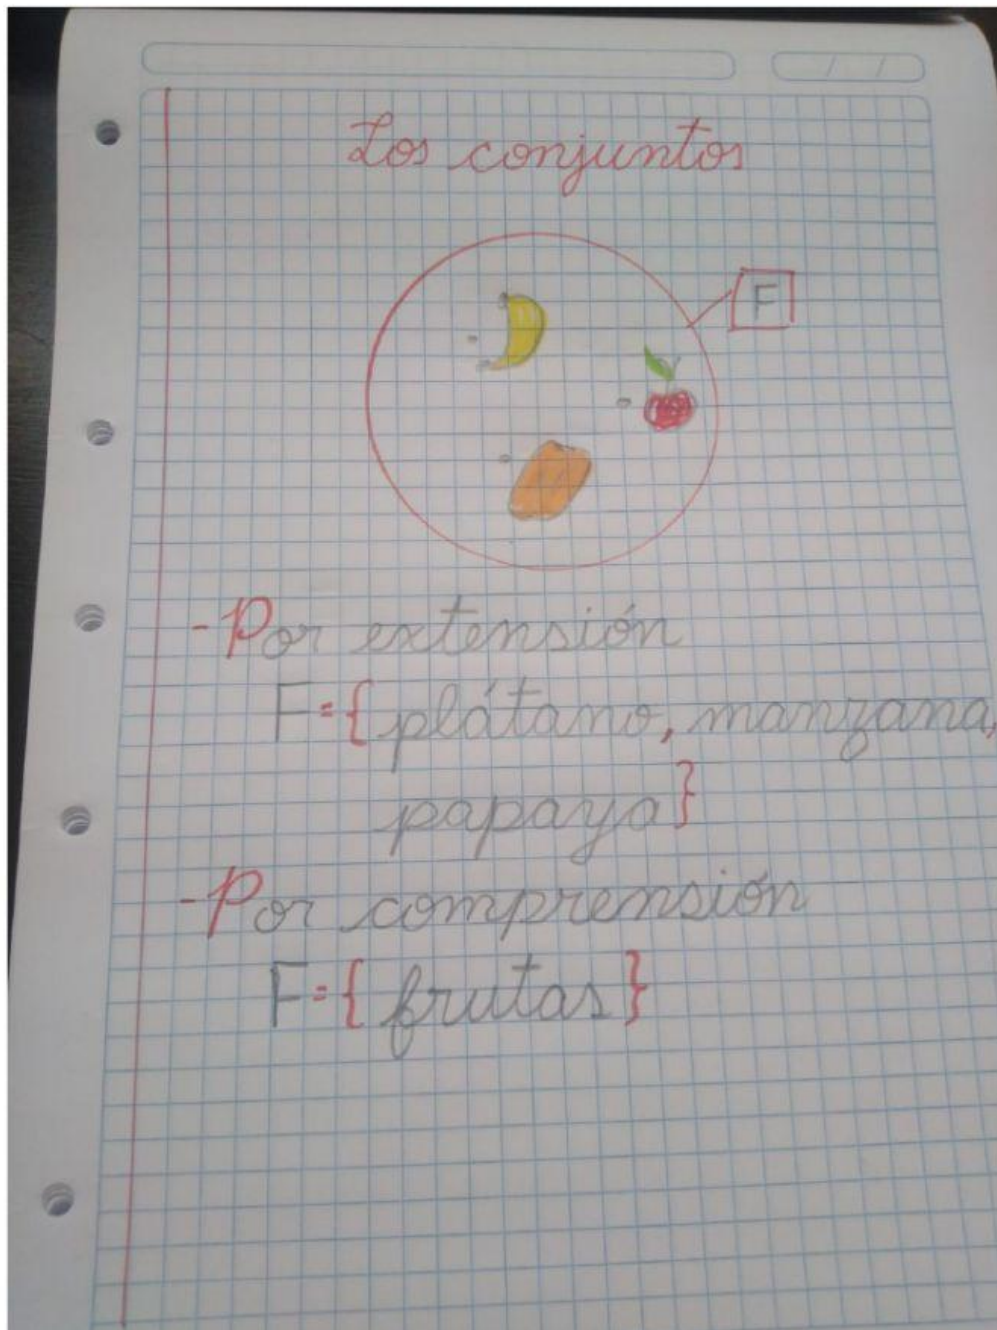 Los conjuntos
F
-Por extensión
F={plátano, manzana,
papaya}
-Por comprensión
F={frutas}